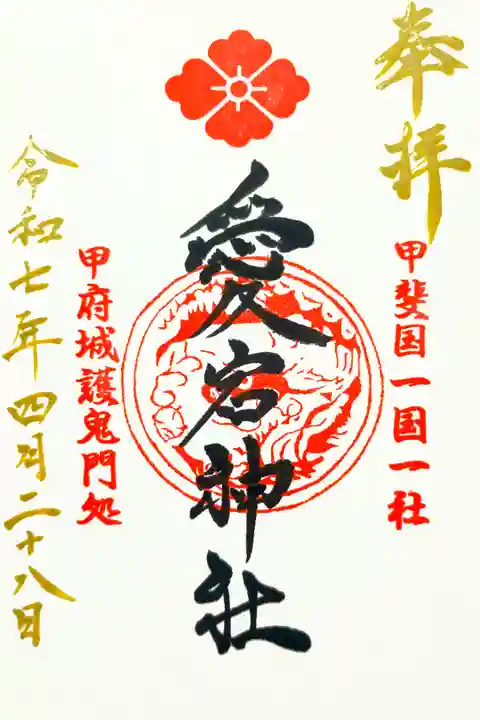 奉拝
甲斐国一国一社
愛宕神社
甲府城護鬼門処
令和七年四月二十八日